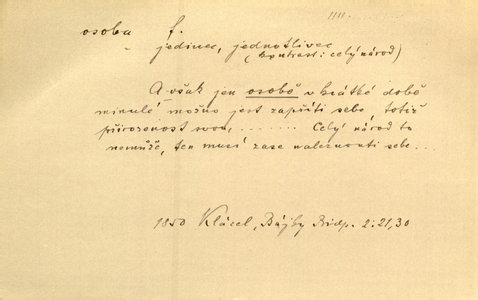 osoba f.
jedinec, jednotlivec
(kontrast: celý národ)
A však jen osobě v krátké době
minulé možno jest zapříti sebe, totiž
přirozenost svou, ....... Celý národ to
nemůže, ten musí zase naleznouti sebe...
1850 Klácel, Bájky Bidp. 2:21,30